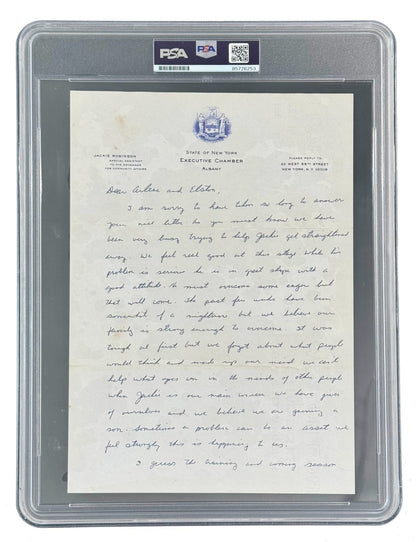 PSA PSA 85728253
STATE OF NEW YORK
EXECUTIVE CHAMBER
ALBANY
JACKIE ROBINSON
SPECIAL ASSISTANT
TO THE GOVERNOR
FOR COMMUNITY AFFAIRS
PLEASE REPLY TO:
22 WEST 55TH STREET
NEW YORK, N.Y. 10019
Dear Arlene and Elston,
I am sorry to have taken so long to answer
your nice letter but you must know we have
been very busy trying to help Jackie get straightened
away. We feel real good at this stage while his
problem is serious he is in great shape with a
good attitude. He must overcome some anger but
that will come. The past few weeks have been
somewhat of a nightmare but we believe our
family is strong enough to overcome. It was
tough at first but we forgot about what people
would think and made up our mind we can't
help what goes on in the minds of other people
when Jackie is our main concern. We have given
of ourselves and we believe we are gaining a
son. Sometimes a problem can be an asset we
feel strongly this is happening to us.
I guess the training and coming season